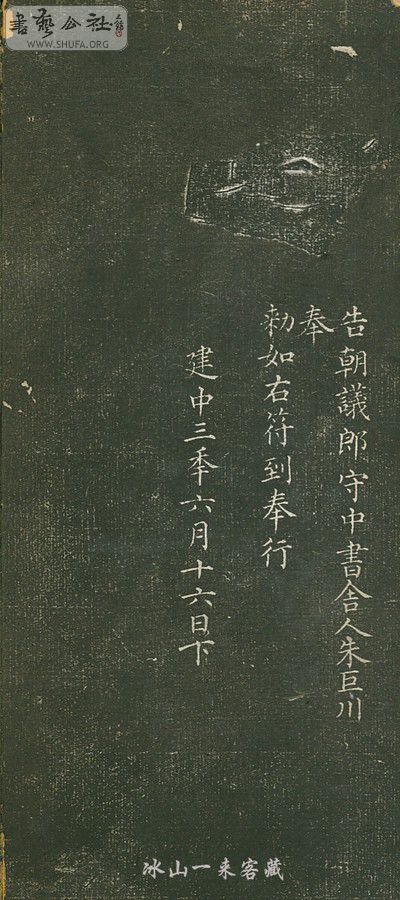 書藝公社
WWW.SHUFA.ORG
告朝議郎守中書舎人朱巨川
奉
勅如右符到奉行
建中三秊六月十六日下
冰山一来客藏